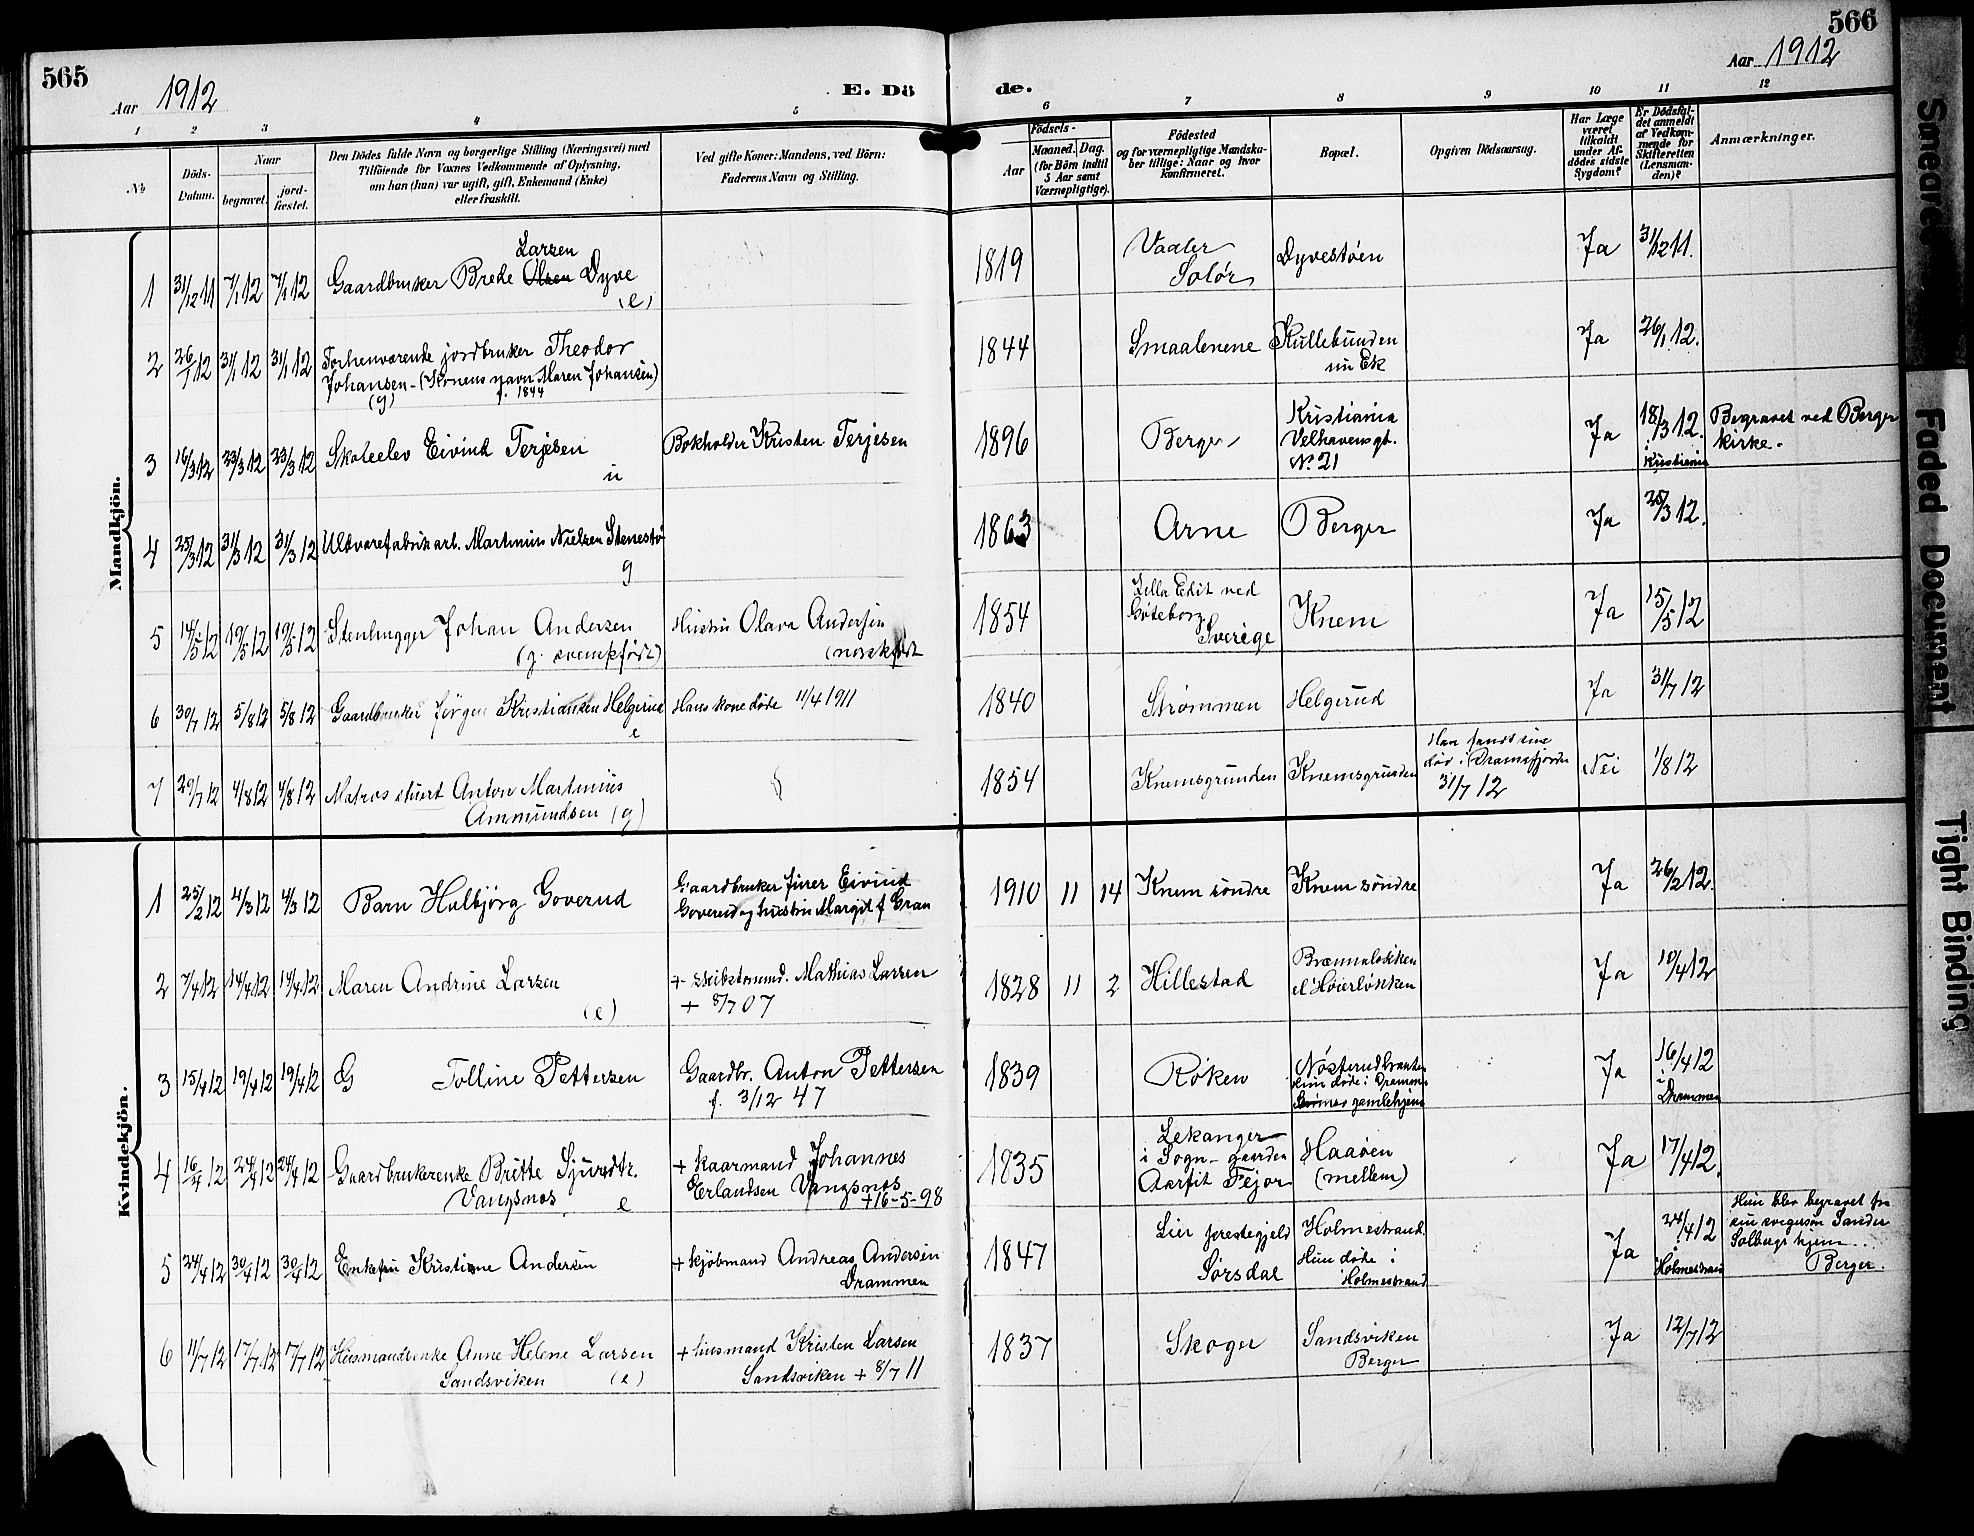 565
566
Aar 1912
E. Dö
de.
Aar 1912
1 2 3 4 5
6 7 8 9 10 11 12
№
Döds-
Datum.
Naar
begravet.
jord-
fæstet.
Den Dödes fulde Navn og borgerlige Stilling (Næringsvei) med
Tilföiende for Voxnes Vedkommende af Oplysning,
om han (hun) var ugift, gift, Enkemand (Enke)
eller fraskilt.
Ved gifte Koner: Mandens, ved Börn:
Faderens Navn og Stilling.
Födsels-
Aar
Maaned. Dag.
(for Börn indtil
5 Aar samt
Værnepligtige).
Födested
og for værnepligtige Mandsku-
ber tillige: Naar og hvor
konfirmeret.
Bopæl.
Opgiven Dödsaarsag.
Har Læge
været
tilkaldt
under Af-
dödes sidste
Sygdom?
Er Dödsfal-
det anmeldt
af Vedkom-
mende for
Skifteretten
(Lensman-
den)?
Anmærkninger.
Mandkjön.
1 31/12 11 7/1 12 7/1 12 Gaardbruker Brede Olsen Dyve
Larsen
(e)
1819 Vaaler
Solør
Dyvestøen Ja 31/12 11.
2 26/1 12 31/1 12 31/1 12 Forhenværende jordbruker Theodor
Johansen - (Konens navn Maren Johansen)
(g) f. 1844
1844 Smaalenene Kullebunden
Ek
Ja 26/1 12.
3 16/3 12 23/3 12 23/3 12 Skoleelev Eivind Terjesen
u
Bokholder Kristen Terjesen
1896 Berger Kristiania
Velhavensgt.
No 21
Ja 18/3 12.
i
Kristiania
Begravet ved Berger
kirke.
4 25/3 12 31/3 12 31/3 12 Uldvarefabrikarb. Martinius Nielsen Stenestø
g
1863 Arne Berger Ja 25/3 12.
5 14/5 12 19/5 12 19/5 12 Stenhugger Johan Andersen
(g. svenskfødt)
Hustru Olava Andersen
(norskfødt
1854 Edit ved
Gøteborg
Sverige
Knem Ja 15/5 12
6 30/7 12 5/8 12 5/8 12 Gaardbruker Jørgen Kristiansen Helgerud
e
Hans kone døde 11/4 1911
1840 Strømmen Helgerud Ja 31/7 12
7 29/7 12 4/8 12 4/8 12 Matros stuert Anton Martinius
Ammundsen (g)
1854 Knemsgrunden Knemsgrunden
Han fandtsine
død i Dramsfjorden
31/7 12
Nei 1/8 12
Kvindekjön.
1 25/2 12 4/3 12 4/3 12 Barn Halbjørg Goverud
Gaardbruker Eivind
Goverud og hustru Margit f Gran
1910 11 14 Knem søndre Knem søndre Ja 26/2 12.
2 7/4 12 14/4 12 14/4 12 Maren Andrine Larsen
(e)
+ skibstømmd. Mathias Larsen
+ 8/7 07
1828 11 2 Hillestad Brænnaløkken
el Høierløkken
Ja 10/4 12
3 15/4 12 19/4 12 19/4 12 G Tolline Pettersen
Gaardbr. Anton Pettersen
f. 3/12 47
1839 Røken Nøsterudbraaten
Hun døde i Drammens
gamlehjem
Ja 16/4 12
i
Drammen
4 16/4 12 24/4 12 24/4 12 Gaardbrukerenke Britte Sjurdtr.
Vangsnos e
+ kaarmand Johannes
Erlandsen Vangsnos
+ 16-5-98
1835 Lekanger
i Sogn - gaarden
Fejor
Haaøen
(mellem)
Ja 17/4 12.
5 24/4 12 30/4 12 30/4 12 Enkefru Kristiane Andersen
+ kjøbmand Andreas Andersen
Drammen
1847 Lier prestegjeld
Sørsdal
Holmestrand.
Hun døde i
Holmestrand
Ja 24/4 12
i
Holmestrand
Hun blev begravet fra
sin svigersøn Sander
Solbergs hjem ...
Berger.
6 11/7 12 17/7 12 17/7 12 Husmandsenke Anne Helene Larsen
Sandsviken (e)
+ husmand Kristen Larsen
Sandsviken + 8/7 11
1837 Skoger Sandsviken
Berger
Ja 12/7 12
Faded Document
Tight Binding